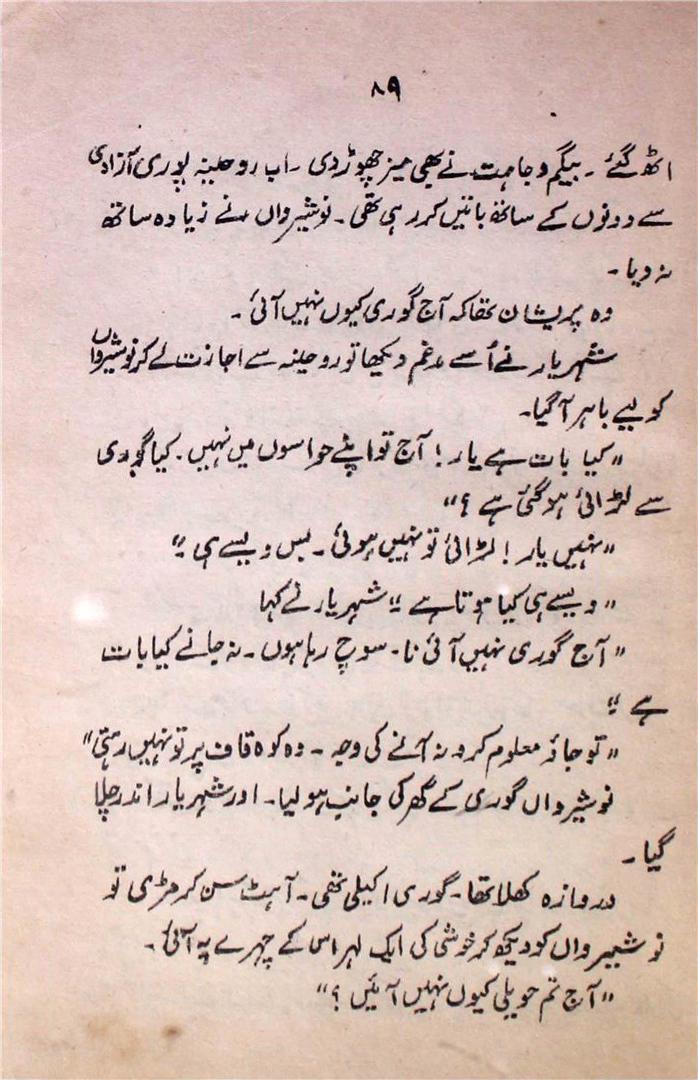 ۸۹
اٹھ گئے ۔ بیگم وجاہت نے بھی میز چھوڑ دی ۔ اب روحینہ پوری آزادی
سے دونوں کے ساتھ باتیں کر رہی تھی ۔ نوشیرواں نے زیادہ ساتھ
نہ دیا ۔
وہ پریشان تھا کہ آج گوری کیوں نہیں آئی ۔
شہریار نے اُسے مدغم دیکھا تو روحینہ سے اجازت لے کر نوشیرواں
کو لیے باہر آ گیا ۔
"کیا بات ہے یار! آج تو اپنے حواسوں میں نہیں ۔ کیا گوری
سے لڑائی ہو گئی ہے ؟"
"نہیں یار! لڑائی تو نہیں ہوئی ۔ بس ویسے ہی ۔"
"ویسے ہی کیا ہوتا ہے ۔" شہریار نے کہا
"آج گوری نہیں آئی نا ۔ سوچ رہا ہوں ۔ نہ جانے کیا بات
ہے ۔"
"تو جاؤ معلوم کرو نہ آنے کی وجہ ۔ وہ کوہ قاف پر تو نہیں رہتی"
نوشیرواں گوری کے گھر کی جانب ہو لیا ۔ اور شہریار اندر چلا
گیا ۔
دروازہ کھلا تھا ۔ گوری اکیلی تھی ۔ آہٹ سن کر مڑی تو
نوشیرواں کو دیکھ کر خوشی کی ایک لہر اس کے چہرے پہ آئی ۔
"آج تم حویلی کیوں نہیں آئیں ؟"